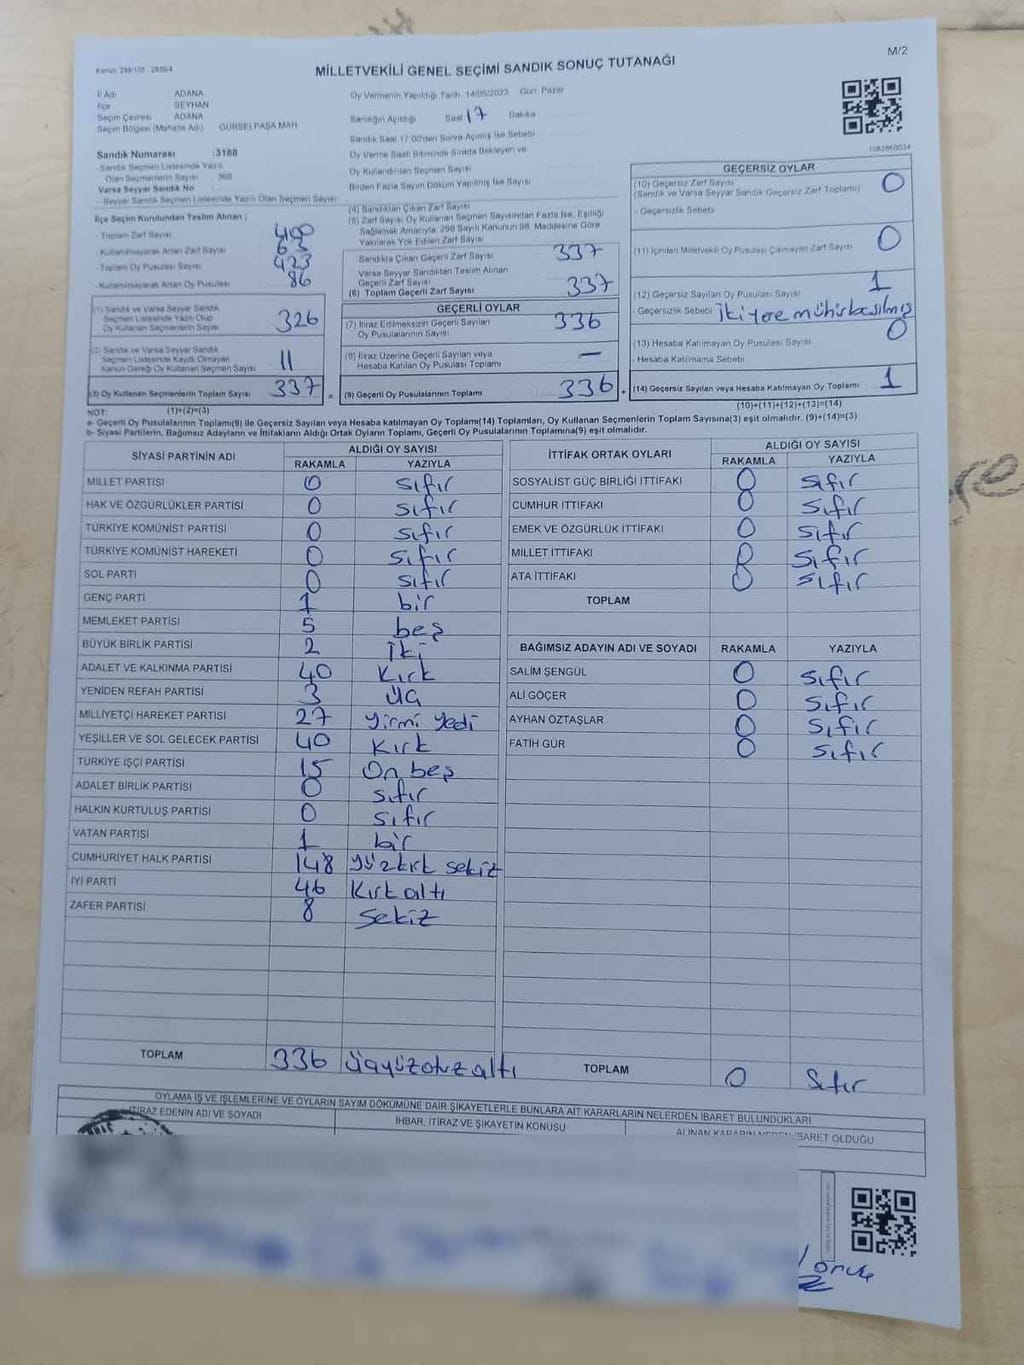 M/2
Kanun: 298/105 - 2839/4
MİLLETVEKİLİ GENEL SEÇİMİ SANDIK SONUÇ TUTANAĞI
İl Adı ADANA
İlçe SEYHAN
Seçim Çevresi ADANA
Seçim Bölgesi (Mahalle Adı) GÜRSELPAŞA MAH
Sandık Numarası :3188
Sandık Seçmen Listesinde Yazılı
Olan Seçmenlerin Sayısı 368
Varsa Seyyar Sandık No
Seyyar Sandık Seçmen Listesinde Yazılı Olan Seçmen Sayısı
Oy Vermenin Yapıldığı Tarih 14/05/2023 Gün Pazar
Sandığın Açıldığı Saat 17 Dakika
Sandık Saat 17:00'den Sonra Açılmış İse Sebebi
Oy Verme Saati Bitiminde Sırada Bekleyen ve
Oy Kullandırılan Seçmen Sayısı
Birden Fazla Sayım Döküm Yapılmış İse Sayısı
İlçe Seçim Kurulundan Teslim Alınan ;
- Toplam Zarf Sayısı 400
- Kullanılmayarak Artan Zarf Sayısı 63
- Toplam Oy Pusulası Sayısı 423
- Kullanılmayarak Artan Oy Pusulası 86
(1) Sandık ve Varsa Seyyar Sandık
Seçmen Listesinde Yazılı Olup
Oy Kullanan Seçmenlerin Sayısı 326
(2) Sandık ve Varsa Seyyar Sandık
Seçmen Listesinde Kayıtlı Olmayan
Kanun Gereği Oy Kullanan Seçmen Sayısı 11
(3) Oy Kullanan Seçmenlerin Toplam Sayısı 337 =
(4) Sandıktan Çıkan Zarf Sayısı
(5) Zarf Sayısı Oy Kullanan Seçmen Sayısından Fazla İse, Eşitliği
Sağlamak Amacıyla, 298 Sayılı Kanunun 98. Maddesine Göre
Yakılarak Yok Edilen Zarf Sayısı
Sandıkta Çıkan Geçerli Zarf Sayısı 337
Varsa Seyyar Sandıktan Teslim Alınan
Geçerli Zarf Sayısı
(6) Toplam Geçerli Zarf Sayısı 337
GEÇERLİ OYLAR
(7) İtiraz Edilmeksizin Geçerli Sayılan
Oy Pusulalarının Sayısı 336
(8) İtiraz Üzerine Geçerli Sayılan veya
Hesaba Katılan Oy Pusulası Toplamı —
(9) Geçerli Oy Pusulalarının Toplamı 336
1083860034
GEÇERSİZ OYLAR
(10) Geçersiz Zarf Sayısı 0
(Sandık ve Varsa Seyyar Sandık Geçersiz Zarf Toplamı)
- Geçersizlik Sebebi
(11) İçinden Milletvekili Oy Pusulası Çıkmayan Zarf Sayısı 0
(12) Geçersiz Sayılan Oy Pusulası Sayısı 1
- Geçersizlik Sebebi iki yere mühür basılmış
(13) Hesaba Katılmayan Oy Pusulası Sayısı 0
- Hesaba Katılmama Sebebi
(14) Geçersiz Sayılan veya Hesaba Katılmayan Oy Toplamı 1
NOT: (1)+(2)=(3) (10)+(11)+(12)+(13)=(14)
a- Geçerli Oy Pusulalarının Toplamı(9) ile Geçersiz Sayılan veya Hesaba katılmayan Oy Toplamı(14) Toplamları, Oy Kullanan Seçmenlerin Toplam Sayısına(3) eşit olmalıdır. (9)+(14)=(3)
b- Siyasi Partilerin, Bağımsız Adayların ve İttifakların Aldığı Ortak Oyların Toplamı, Geçerli Oy Pusulalarının Toplamına(9) eşit olmalıdır.
SİYASİ PARTİNİN ADI ALDIĞI OY SAYISI
RAKAMLA YAZIYLA
MİLLET PARTİSİ 0 sıfır
HAK VE ÖZGÜRLÜKLER PARTİSİ 0 sıfır
TÜRKİYE KOMÜNİST PARTİSİ 0 sıfır
TÜRKİYE KOMÜNİST HAREKETİ 0 sıfır
SOL PARTİ 0 sıfır
GENÇ PARTİ 1 bir
MEMLEKET PARTİSİ 5 beş
BÜYÜK BİRLİK PARTİSİ 2 iki
ADALET VE KALKINMA PARTİSİ 40 Kırk
YENİDEN REFAH PARTİSİ 3 üç
MİLLİYETÇİ HAREKET PARTİSİ 27 yirmi yedi
YEŞİLLER VE SOL GELECEK PARTİSİ 40 Kırk
TÜRKİYE İŞÇİ PARTİSİ 15 On beş
ADALET BİRLİK PARTİSİ 0 sıfır
HALKIN KURTULUŞ PARTİSİ 0 sıfır
VATAN PARTİSİ 1 bir
CUMHURİYET HALK PARTİSİ 148 yüzkırk sekiz
İYİ PARTİ 46 Kırk altı
ZAFER PARTİSİ 8 sekiz
TOPLAM 336 üçyüzotuzaltı
İTTİFAK ORTAK OYLARI ALDIĞI OY SAYISI
RAKAMLA YAZIYLA
SOSYALİST GÜÇ BİRLİĞİ İTTİFAKI 0 sıfır
CUMHUR İTTİFAKI 0 sıfır
EMEK VE ÖZGÜRLÜK İTTİFAKI 0 sıfır
MİLLET İTTİFAKI 0 sıfır
ATA İTTİFAKI 0 sıfır
TOPLAM
BAĞIMSIZ ADAYIN ADI VE SOYADI RAKAMLA YAZIYLA
SALİM ŞENGÜL 0 sıfır
ALİ GÖÇER 0 sıfır
AYHAN ÖZTAŞLAR 0 sıfır
FATİH GÜR 0 sıfır
TOPLAM 0 Sıfır
OYLAMA İŞ VE İŞLEMLERİNE VE OYLARIN SAYIM DÖKÜMÜNE DAİR ŞİKAYETLERLE BUNLARA AİT KARARLARIN NELERDEN İBARET BULUNDUKLARI
İTİRAZ EDENİN ADI VE SOYADI
İHBAR, İTİRAZ VE ŞİKAYETİN KONUSU
ALINAN KARARIN NEDEN İBARET OLDUĞU